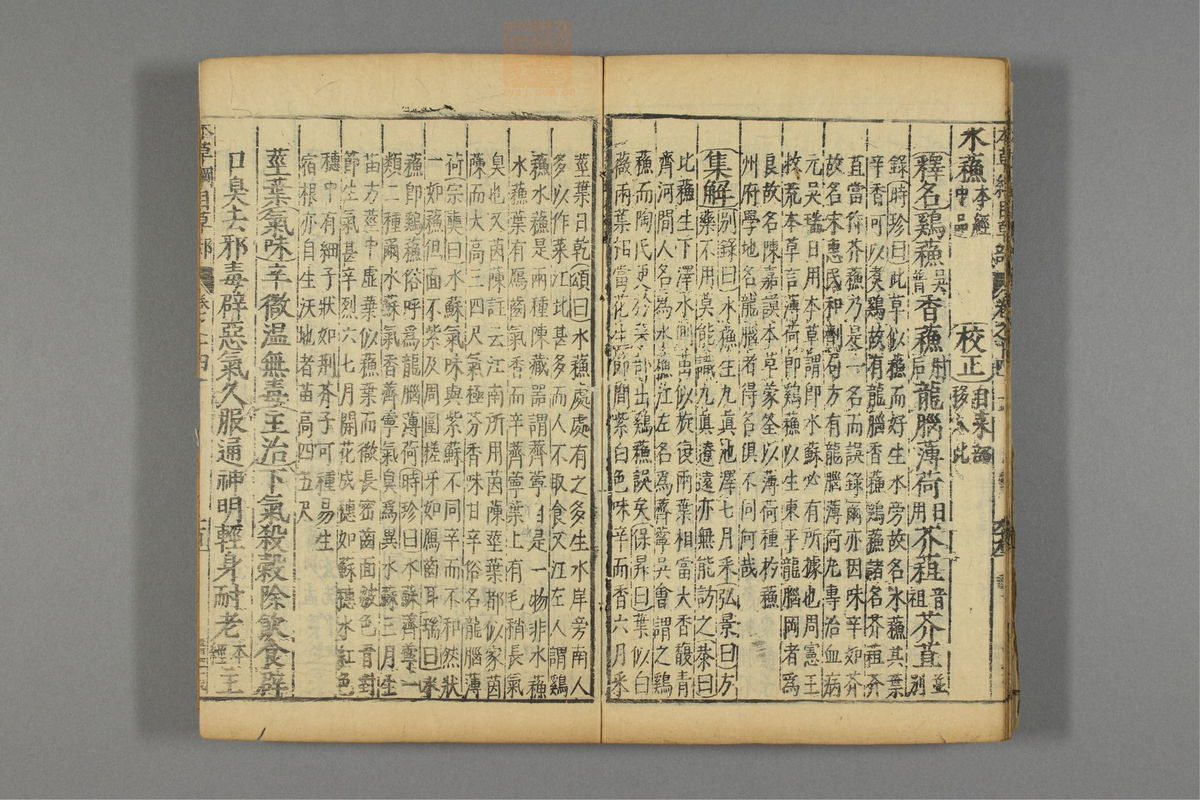 水蘇本經中品 校正自菜部移入此
釋名鷄蘇吳普香蘇肘後龍腦薄荷日用芥蒩音祖芥苴並別
錄時珍曰此草似蘇而好生水旁故名水蘇其葉
辛香可以煑鷄故有龍腦香蘇鷄蘇諸名芥蒩芥
苴當作芥蘇乃是一名而誤錄爾亦因味辛如芥
故名宋惠民和劑局方有龍腦薄荷丸專治血病
元吳瑞日用本草謂即水蘇必有所據也周憲王
救荒本草言薄荷即鷄蘇以生東平龍腦岡者爲
良故名陳嘉謨本草蒙筌以薄荷種於蘇
州府學地名龍腦者得名俱不同何哉
集解別錄曰水蘇生九真池澤七月采弘景曰方
藥不用莫能識九真遼遠亦無能訪之恭曰
此蘇生下澤水側苗似旋復兩葉相當大香馥青
齊河間人名爲水蘇江左名爲薺薴吳會謂之鷄
蘇而陶氏更於菜部出鷄蘇誤矣保昇曰葉似白
薇兩葉相當花生節間紫白色味辛而香六月采
莖葉日乾頌曰水蘇處處有之多生水岸旁南人
多以作菜江北甚多而人不取食又江左人謂鷄
蘇水蘇是兩種陳藏器謂薺薴自是一物非水蘇
水蘇葉有鴈齒氣香而辛薺薴葉上有毛稍長氣
臭也又茵陳註云江南所用茵陳莖葉都似家茵
陳而大高三四尺氣極芬香味甘辛俗名龍腦薄
荷宗奭曰水蘇氣味與紫蘇不同辛而不和然狀
一如蘇但面不紫及周圍槎牙如鴈齒耳瑞曰水
蘇即鷄蘇俗呼爲龍腦薄荷時珍曰水蘇薺薴一
類二種爾水蘇氣香薺薴氣臭爲異水蘇三月生
苗方莖中虛葉似蘇葉而微長密齒面皺色青對
節生氣甚辛烈六七月開花成穗如蘇穗水紅色
穗中有細子狀如荆芥子可種易生
宿根亦自生沃地者苗高四五尺
莖葉氣味辛微溫無毒主治下氣殺穀除飲食辟
口臭去邪毒辟惡氣久服通神明輕身耐老本經主